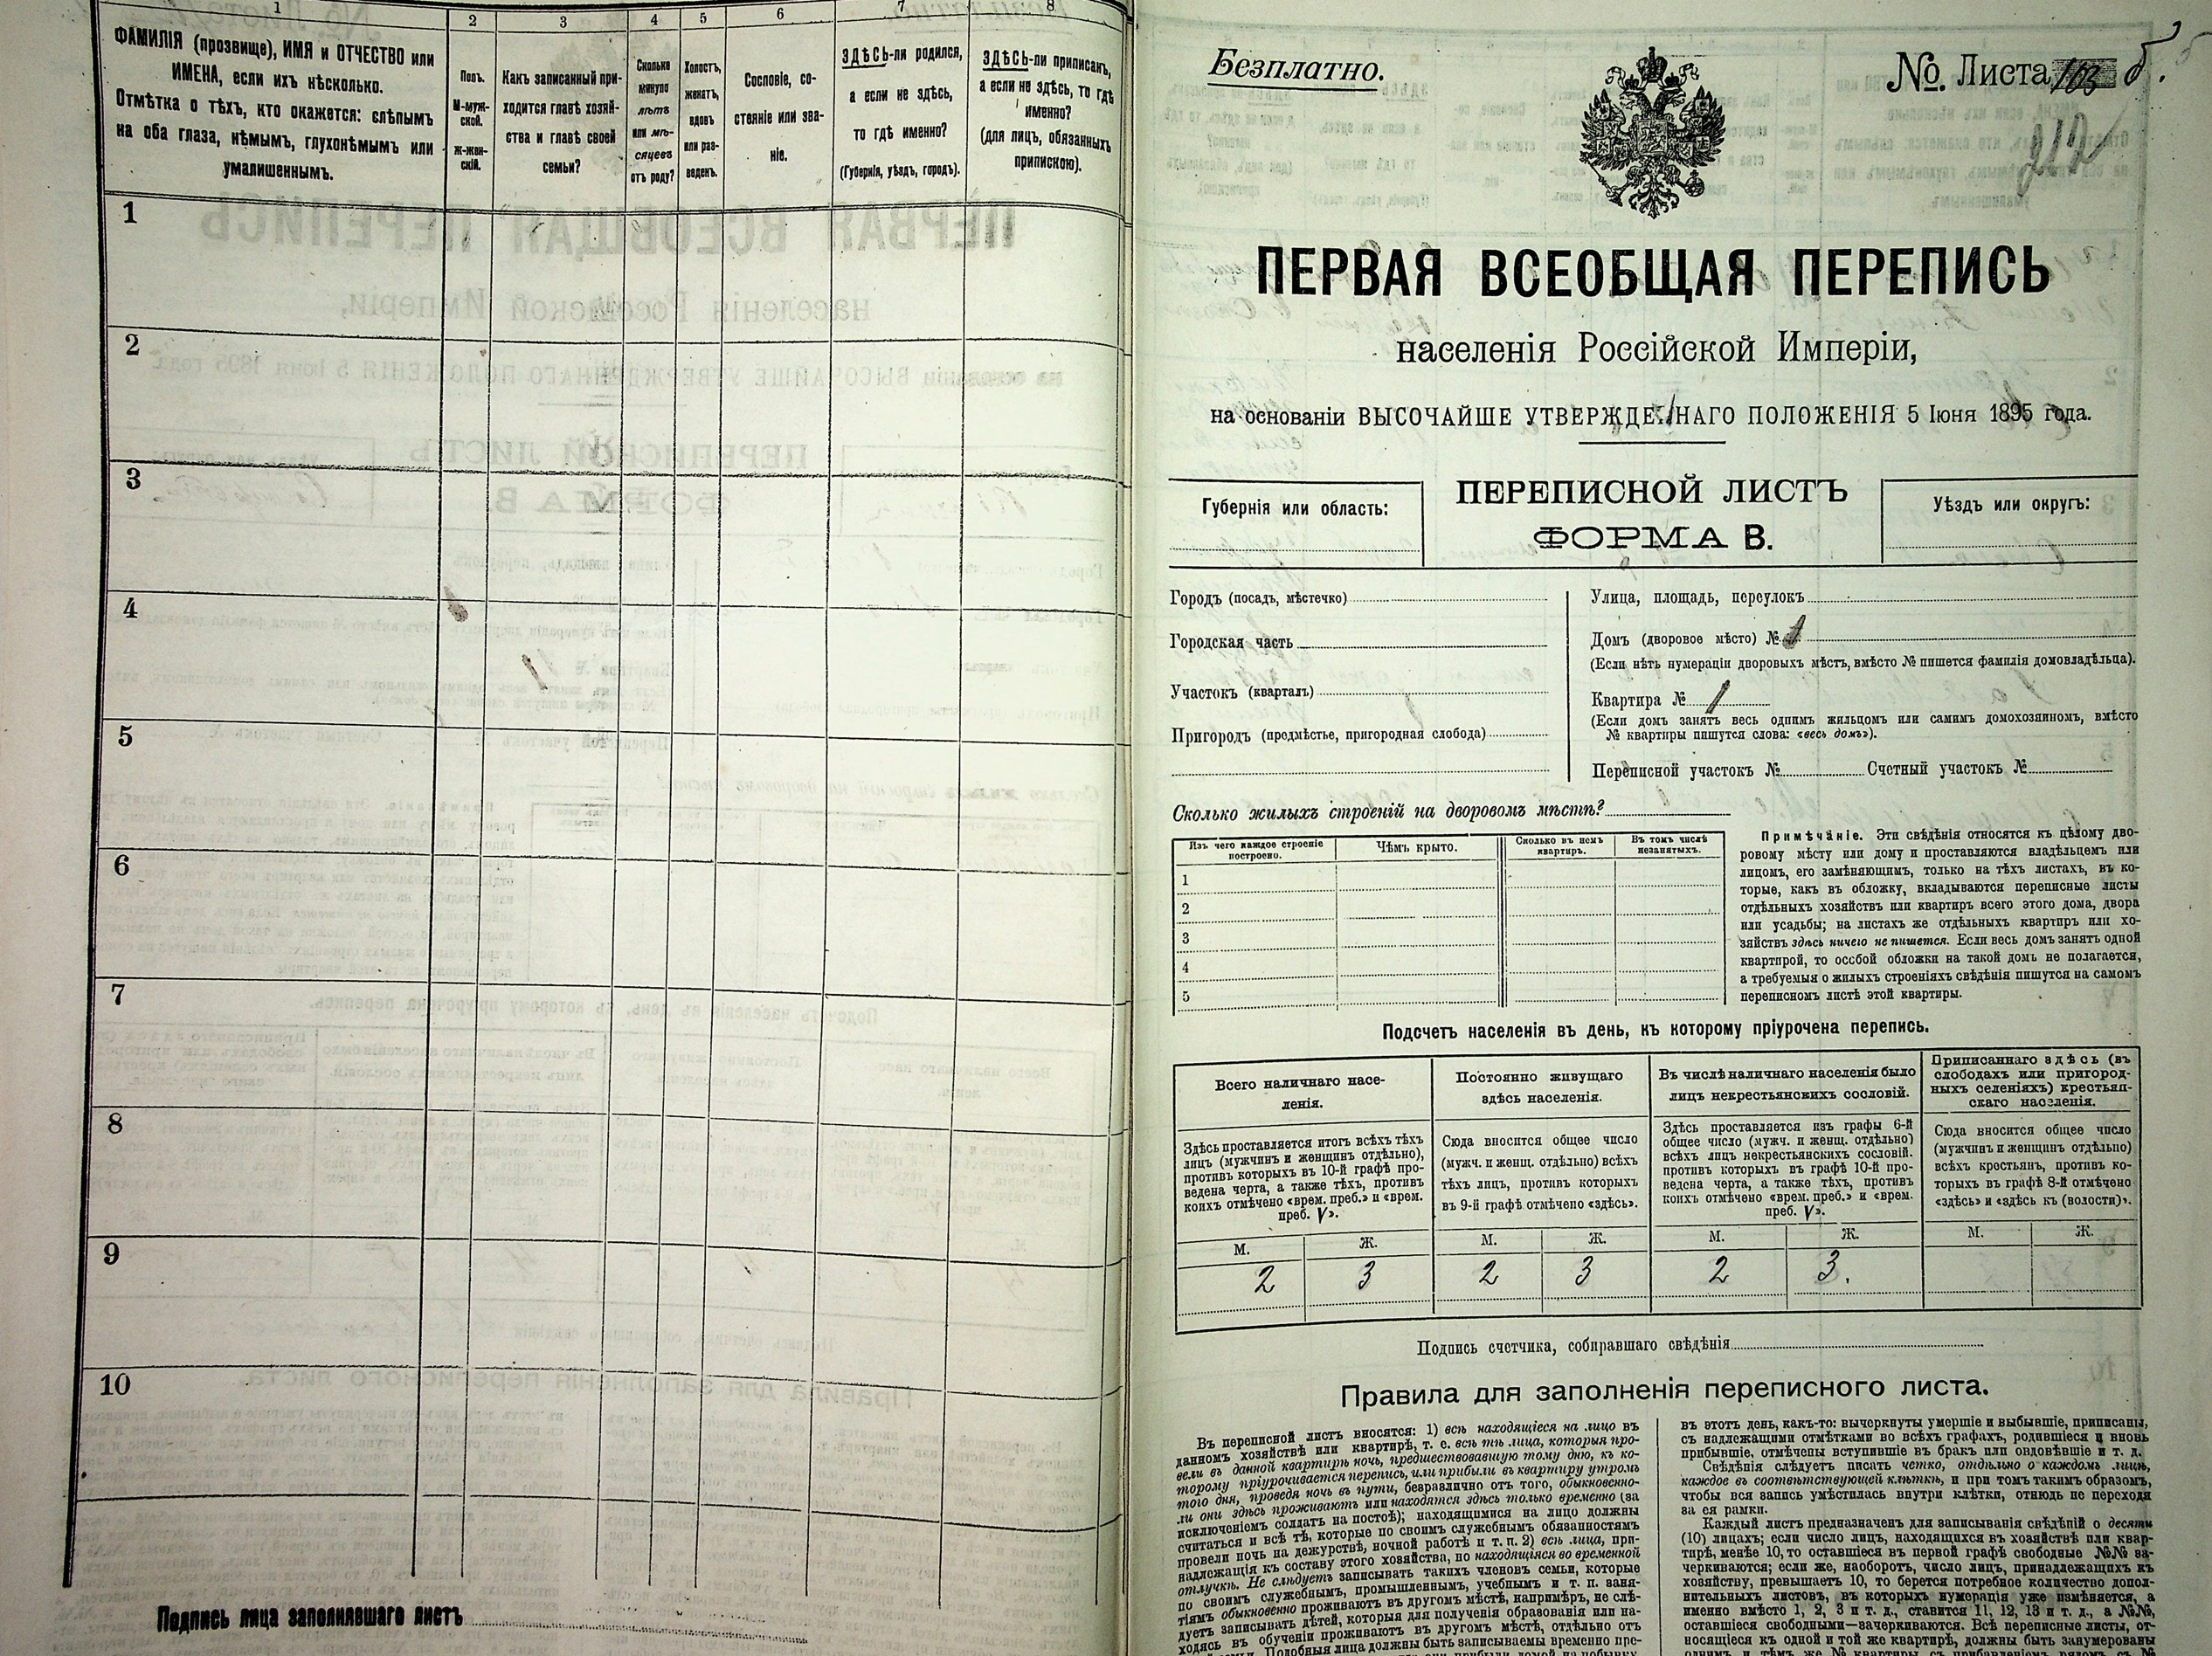 1
2
3
4
5
6
7
8
ФАМИЛІЯ (прозвище), ИМЯ и ОТЧЕСТВО или
ИМЕНА, если ихъ нѣсколько.
Отмѣтка о тѣхъ, кто окажется: слѣпымъ
на оба глаза, нѣмымъ, глухонѣмымъ или
умалишеннымъ.
Полъ.
М-муж-
ской.
Ж-жен-
скій.
Какъ записанный при-
ходится главѣ хозяй-
ства и главѣ своей
семьи?
Сколько
минуло
лѣтъ
или мѣ-
сяцевъ
отъ роду?
Холостъ,
женатъ,
вдовъ
или раз-
веденъ.
Сословіе, со-
стояніе или зва-
ніе.
ЗДѢСЬ-ли родился,
а если не здѣсь,
то гдѣ именно?
(Губернія, уѣздъ, городъ).
ЗДѢСЬ-ли приписанъ,
а если не здѣсь, то гдѣ
именно?
(для лицъ, обязанныхъ
припискою).
1
2
3
4
5
6
7
8
9
10
Подпись лица заполнявшаго листъ
Безплатно.
№ Листа 163 б.
212
ПЕРВАЯ ВСЕОБЩАЯ ПЕРЕПИСЬ
населенія Россійской Имперіи,
на основаніи ВЫСОЧАЙШЕ УТВЕРЖДЕННАГО ПОЛОЖЕНІЯ 5 Іюня 1895 года.
Губернія или область:
ПЕРЕПИСНОЙ ЛИСТЪ
ФОРМА В.
Уѣздъ или округъ:
Городъ (посадъ, мѣстечко)
Городская часть
Участокъ (кварталъ)
Пригородъ (предмѣстье, пригородная слобода)
Улица, площадь, переулокъ
Домъ (дворовое мѣсто) № 1
(Если нѣтъ нумераціи дворовыхъ мѣстъ, вмѣсто № пишется фамилія домовладѣльца).
Квартира № 1
(Если домъ занятъ весь однимъ жильцомъ или самимъ домохозяиномъ, вмѣсто
№ квартиры пишутся слова: «весь домъ»).
Переписной участокъ № Счетный участокъ №
Сколько жилыхъ строеній на дворовомъ мѣстѣ?
Изъ чего каждое строеніе
построено.
Чѣмъ крыто.
Сколько въ немъ
квартиръ.
Въ томъ числѣ
незанятыхъ.
1
2
3
4
5
Примѣчаніе. Эти свѣдѣнія относятся къ цѣлому дво-
ровому мѣсту или дому и проставляются владѣльцемъ или
лицомъ, его замѣняющимъ, только на тѣхъ листахъ, въ ко-
торые, какъ въ обложку, вкладываются переписные листы
отдѣльныхъ хозяйствъ или квартиръ всего этого дома, двора
или усадьбы; на листахъ же отдѣльныхъ квартиръ или хо-
зяйствъ здѣсь ничего не пишется. Если весь домъ занятъ одной
квартирой, то особой обложки на такой домъ не полагается,
а требуемыя о жилыхъ строеніяхъ свѣдѣнія пишутся на самомъ
переписномъ листѣ этой квартиры.
Подсчетъ населенія въ день, къ которому пріурочена перепись.
Всего наличнаго насе-
ленія.
Здѣсь проставляется итогъ всѣхъ тѣхъ
лицъ (мужчинъ и женщинъ отдѣльно),
противъ которыхъ въ 10-й графѣ про-
ведена черта, а также тѣхъ, противъ
коихъ отмѣчено «врем. преб.» и «врем.
преб. V».
Постоянно живущаго
здѣсь населенія.
Сюда вносится общее число
(мужч. и женщ. отдѣльно) всѣхъ
тѣхъ лицъ, противъ которыхъ
въ 9-й графѣ отмѣчено «здѣсь».
Въ числѣ наличнаго населенія было
лицъ некрестьянскихъ сословій.
Здѣсь проставляется изъ графы 6-й
общее число (мужч. и женщ. отдѣльно)
всѣхъ лицъ некрестьянскихъ сословій.
противъ которыхъ въ графѣ 10-й про-
ведена черта, а также тѣхъ, противъ
коихъ отмѣчено «врем. преб.» и «врем.
преб. V».
Приписаннаго здѣсь (въ
слободахъ или пригород-
ныхъ селеніяхъ) крестьян-
скаго населенія.
Сюда вносится общее число
(мужчинъ и женщинъ отдѣльно)
всѣхъ крестьян, противъ ко-
торыхъ въ графѣ 8-й отмѣчено
«здѣсь» и «здѣсь къ (волости)».
М. Ж. М. Ж. М. Ж. М. Ж.
2 3 2 3 2 3.
Подпись счетчика, собиравшаго свѣдѣнія
Правила для заполненія переписного листа.
Въ переписной листъ вносятся: 1) всѣ находящіеся на лицо въ
данномъ хозяйствѣ или квартирѣ, т. е. всѣ тѣ лица, которыя про-
вели въ данной квартирѣ ночь, предшествовавшую тому дню, къ ко-
торому пріурочивается перепись, или прибыли въ квартиру утромъ
того дня, проведя ночь въ пути, безразлично отъ того, обыкновенно-
ли они здѣсь проживаютъ или находятся здѣсь только временно (за
исключеніемъ солдатъ на постоѣ); находящимися на лицо должны
считаться и всѣ тѣ, которые по своимъ служебнымъ обязанностямъ
провели ночь на дежурствѣ, ночной работѣ и т. п. 2) всѣ лица, при-
надлежащія къ составу этого хозяйства, но находящіяся во временной
отлучкѣ. Не слѣдуетъ записывать такихъ членовъ семьи, которые
по своимъ служебнымъ, промышленнымъ, учебнымъ и т. п. заня-
тіямъ обыкновенно проживаютъ въ другомъ мѣстѣ, напримѣръ, не слѣ-
дуетъ записывать дѣтей, которыя для полученія образованія или на-
ходясь въ обученіи проживаютъ въ другомъ мѣстѣ, отдѣльно отъ
семьи. Подобныя лица должны быть записываемы временно пре-
въ этотъ день, какъ-то: вычеркнуты умершіе и выбывшіе, приписаны,
съ надлежащими отмѣтками во всѣхъ графахъ, родившіеся и вновь
прибывшіе, отмѣчены вступившіе въ бракъ или овдовѣвшіе и т. д.
Свѣдѣнія слѣдуетъ писать четко, отдѣльно о каждомъ лицѣ,
каждое въ соотвѣтствующей клѣткѣ, и при томъ такимъ образомъ,
чтобы вся запись умѣстилась внутри клѣтки, отнюдь не переходя
за ея рамки.
Каждый листъ предназначенъ для записыванія свѣдѣній о десяти
(10) лицахъ; если число лицъ, находящихся въ хозяйствѣ или квар-
тирѣ, менѣе 10, то оставшіеся въ первой графѣ свободные №№ за-
черкиваются; если же, наоборотъ, число лицъ, принадлежащихъ къ
хозяйству, превышаетъ 10, то берется потребное количество допол-
нительныхъ листовъ, въ которыхъ нумерація уже измѣняется, а
именно вмѣсто 1, 2, 3 и т. д., ставится 11, 12, 13 и т. д., а №№,
оставшіеся свободными—зачеркиваются. Всѣ переписные листы, от-
носящіеся къ одной и той же квартирѣ, должны быть занумерованы